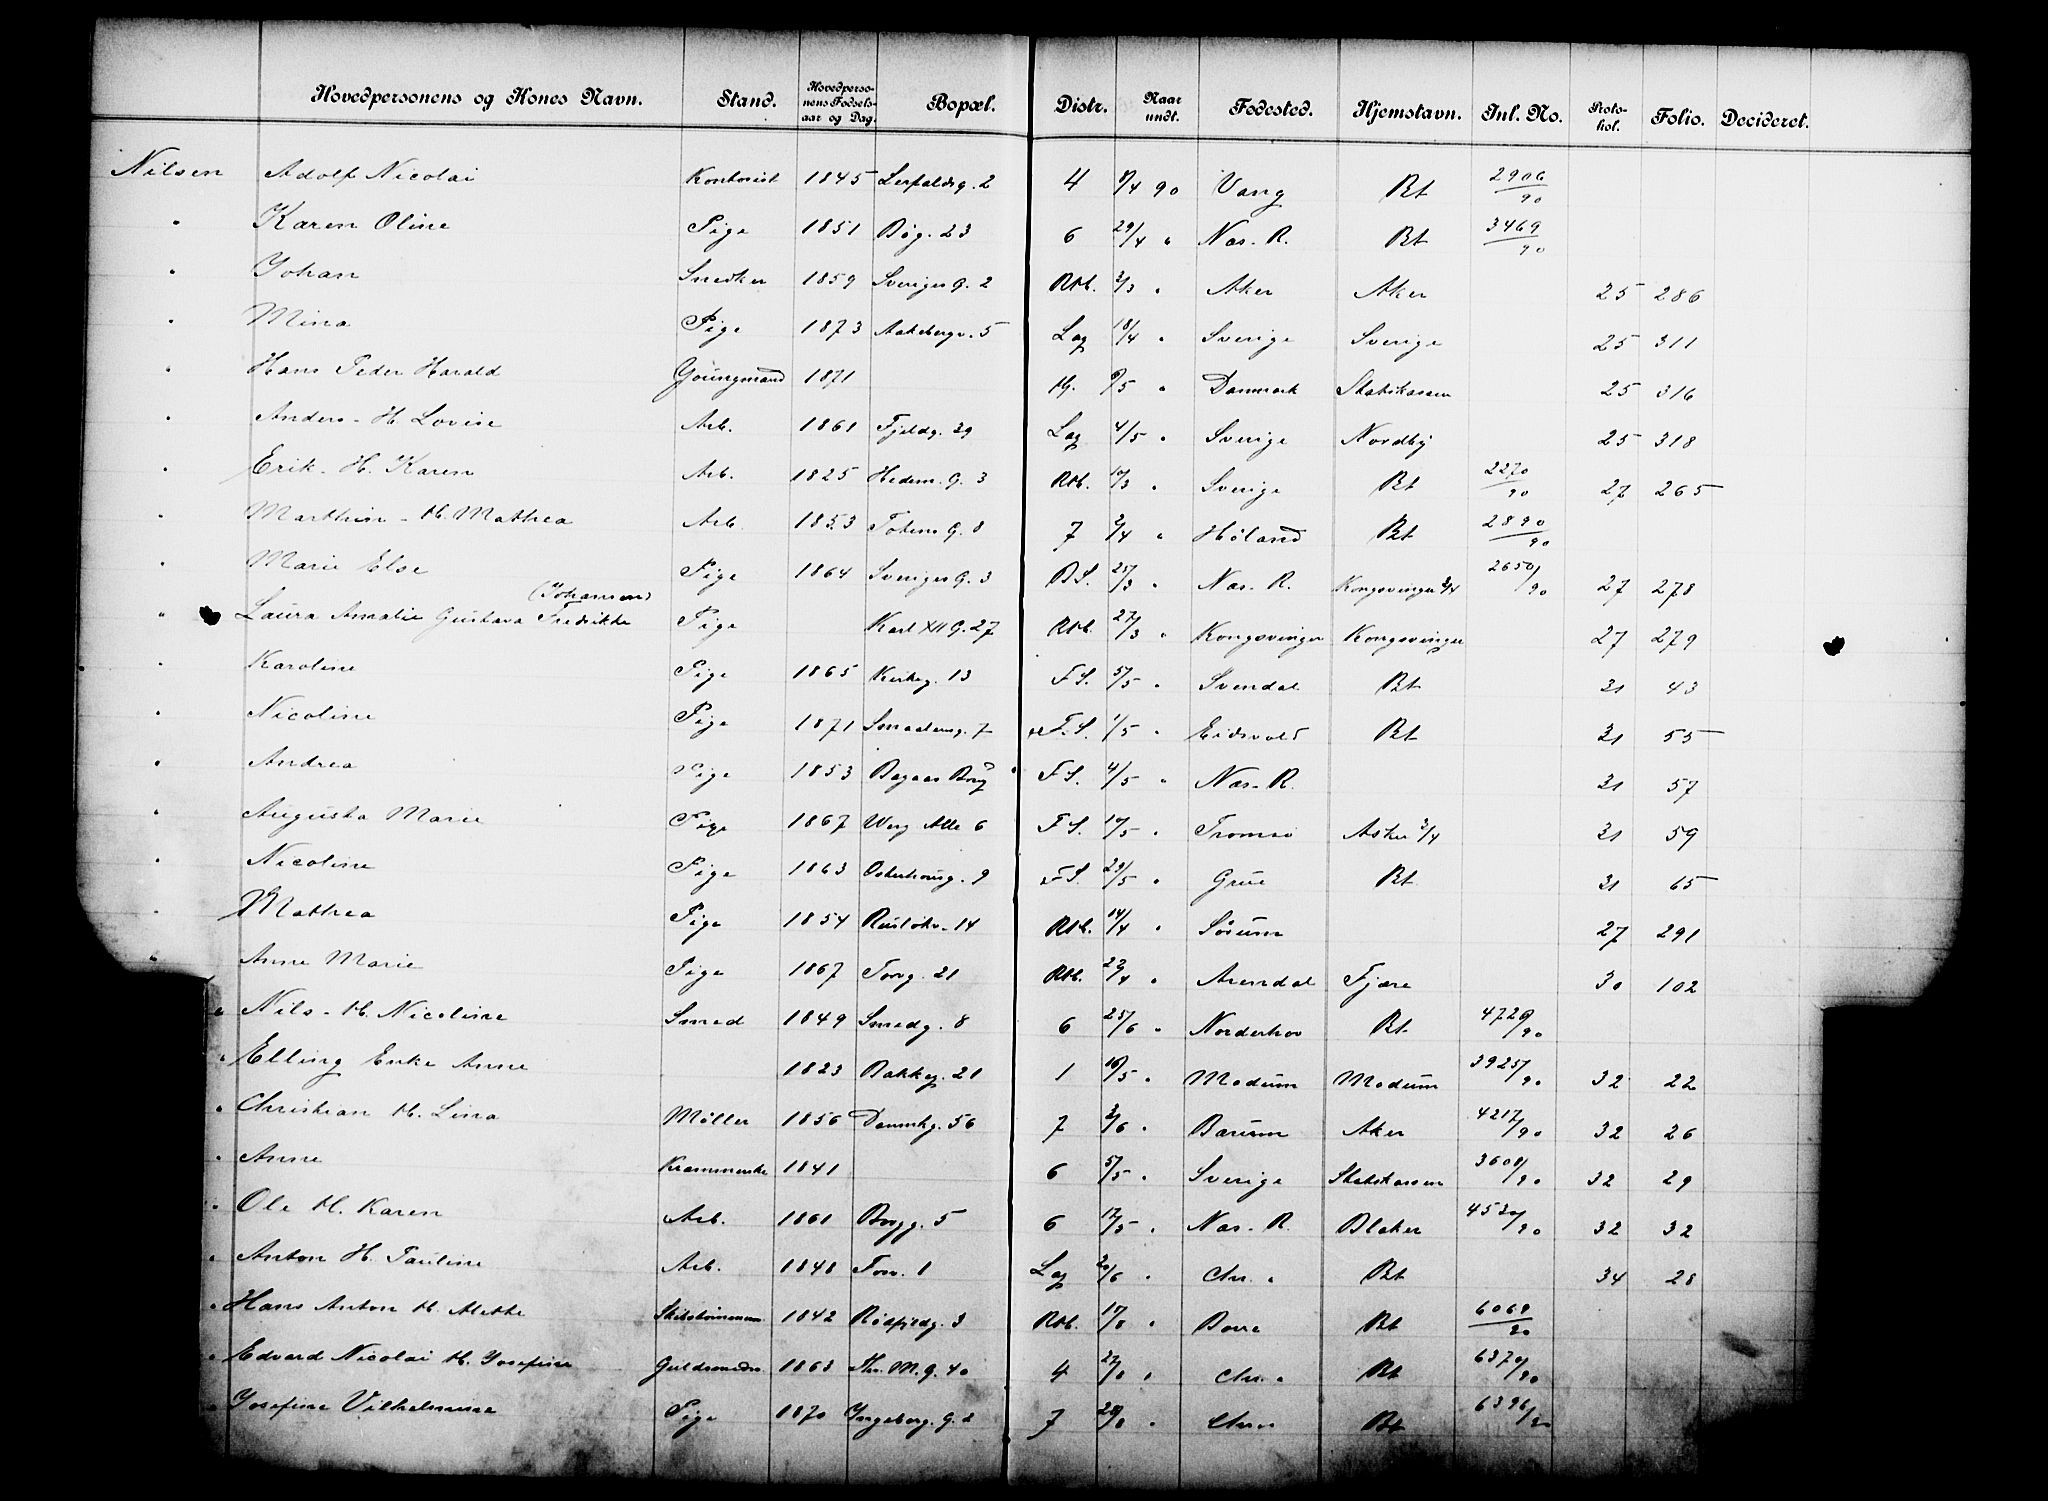 Hovedpersonens og Kones Navn. Stand. Hovedperso-nens Fødsels-aar og Dag. Bopæl. Distr. Naar undt. Fødested. Hjemstavn. Inl. No. Proto-kol. Folio. Decideret.
Nilsen Adolf Nicolai Kontorist 1845 2 4 90 Vang Bt 2906/90
" Karen Oline Pige 1851 Bøg. 23 6 29/4 " Næs. R. Bt 3469/90
" Johan Snedker 1859 Sveriges G. 2 Rth. 2/3 " Aker Aker 25 286
" Mina Pige 1873 Aakebergv. 5 Log 18/4 " Sverige Sverige 25 311
" Hans Peder Harald 1871 /5 " Danmark Statskassen 25 316
" Anders - H. Lovise Arb. 1861 Fjeldg. 29 Log 4/5 " Sverige Nordby 25 318
" Erik - H. Karen Arb. 1825 Hedem. G. 3 Rth. 10/3 " Sverige Bt 2270/90 27 265
" Marthin - H. Mathea Arb. 1853 Totens G. 8 7 2/4 " Høland Bt 2890/90
" Marie Else Pige 1864 Sveriges G. 3 B.S. 25/3 " Næs. R. Kongsvinger 2/4 2650/90 27 278
" Laura Amalie Gustava Fredrikke (Johansen) Pige Karl XII G. 27 Rth. 27/3 " Kongsvinger Kongsvinger 27 279
" Karoline Pige 1865 Kirkeg. 13 F.S. 5/5 " Bt 31 43
" Nicoline Pige 1871 Smaalensg. 7 F.S. 1/5 " Eidsvold Bt 31 55
" Andrea Pige 1853 F.S. 4/5 " Næs. R. 31 57
" Augusta Marie Pige 1867 Alle 6 F.S. 17/5 " Tromsø Asker 3/4 31 59
" Nicoline Pige 1863 Osterhousg. 9 F.S. 29/5 " Grue Bt 31 65
" Mathea Pige 1854 Ruseløkv. 14 Rth. 14/4 " Sørum 27 291
" Anne Marie Pige 1867 Torvg. 21 Rth. 22/4 " Arendal Fjære 30 102
" Nils - H. Nicoline Smed 1849 Smedg. 8 6 25/6 " Norderhov Bt 4729/90
" Elling Enke Anne 1823 Bakkeg. 21 1 10/5 " Modum Modum 3925/90 32 22
" Christian H. Lina Møller 1856 Danmkg. 56 7 2/6 " Bærum Aker 4217/90 32 26
" Anne Kræmmerske 1841 6 5/5 " Sverige Statskassen 3608/90 32 29
" Ole H. Karen Arb. 1861 Brygg. 5 6 17/5 " Næs. R. Blaker 4530/90 32 32
" Anton H. Pauline Arb. 1848 Tov. 1 Log 20/6 " Chr. a Bt 34 28
" Hans Anton H. Mette Skibstømmerm 1842 Rødfyldg. 3 Rth. 17/8 " Borre Bt 6069/90
" Edvard Nicolai H. Josefine Guldsmedsv. 1863 Thv. M. G. 40 4 27/8 " Chr. a Bt 6370/90
" Josefine Vilhelmine Pige 1870 Ingeborg. G. 2 7 28/8 " Chr. a Bt 6396/90